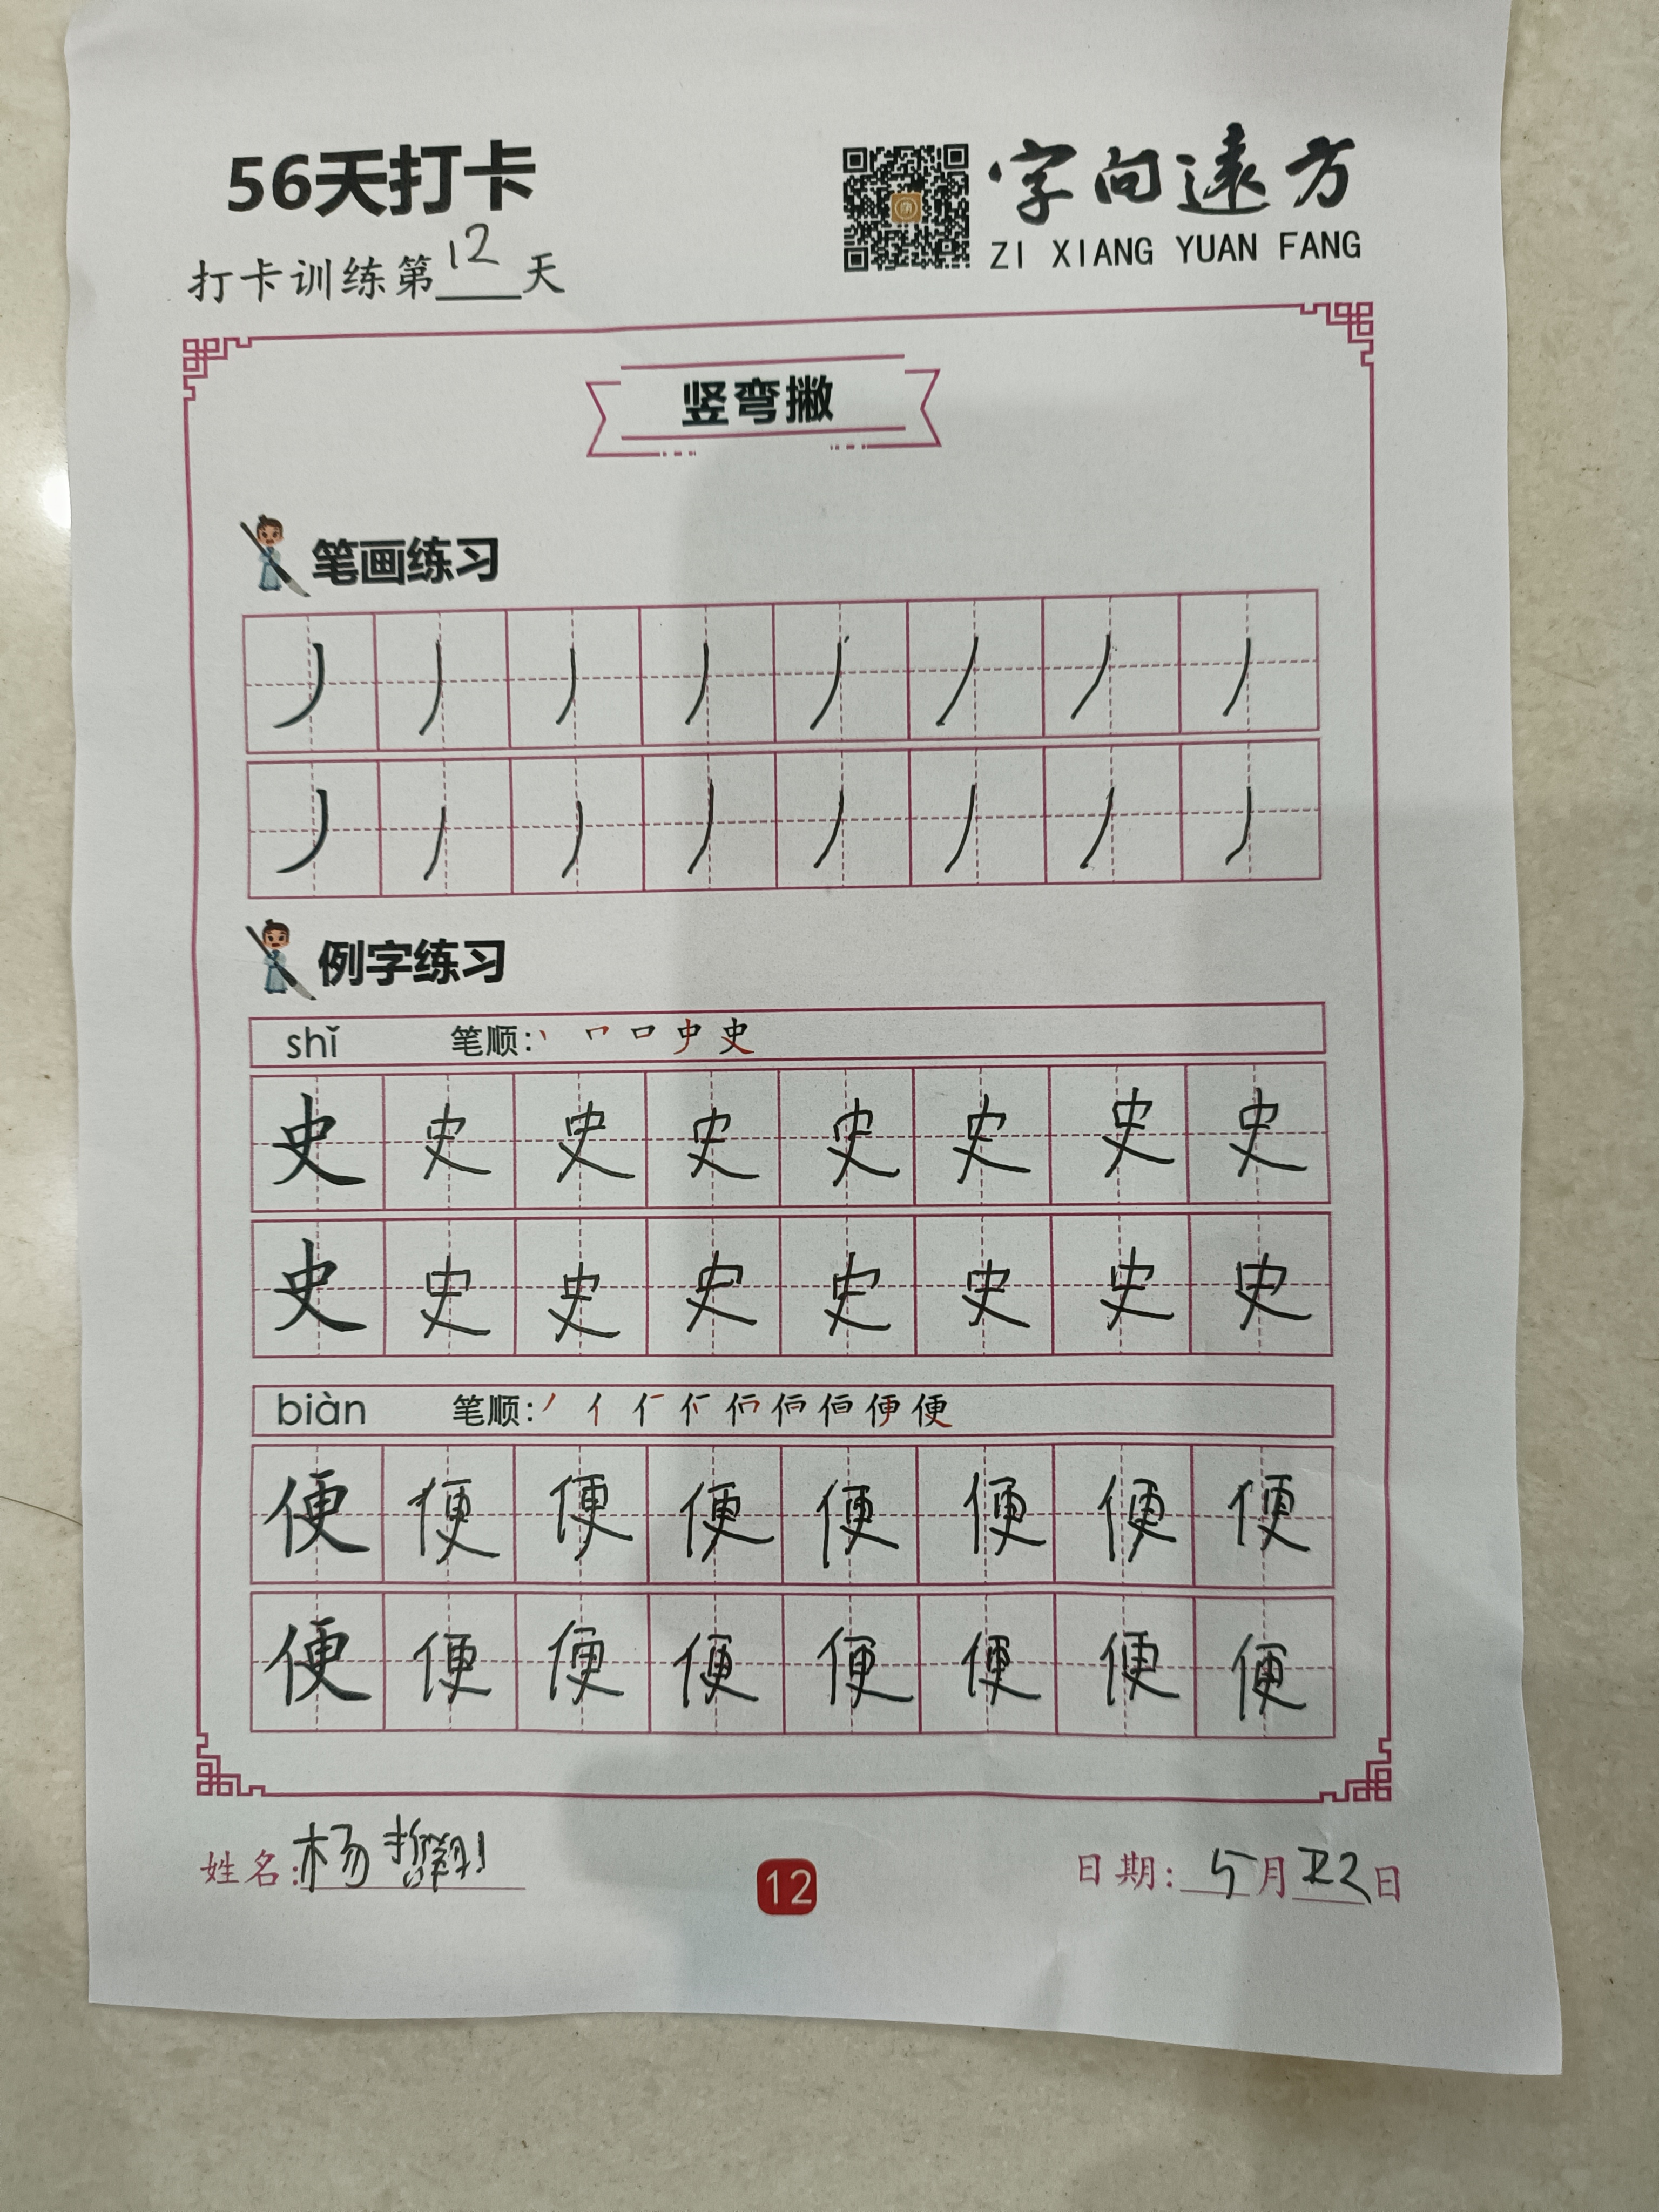 56天打卡
字向遠方
ZI XIANG YUAN FANG
打卡训练第12天
竖弯撇
笔画练习
丿丿丿丿丿丿丿丿
丿丿丿丿丿丿丿丿
例字练习
shǐ 笔顺:
史史史史史史史史
史史史史史史史史
biàn 笔顺:
便便便便便便便便
便便便便便便便便
姓名:杨
12
日期:5月22日